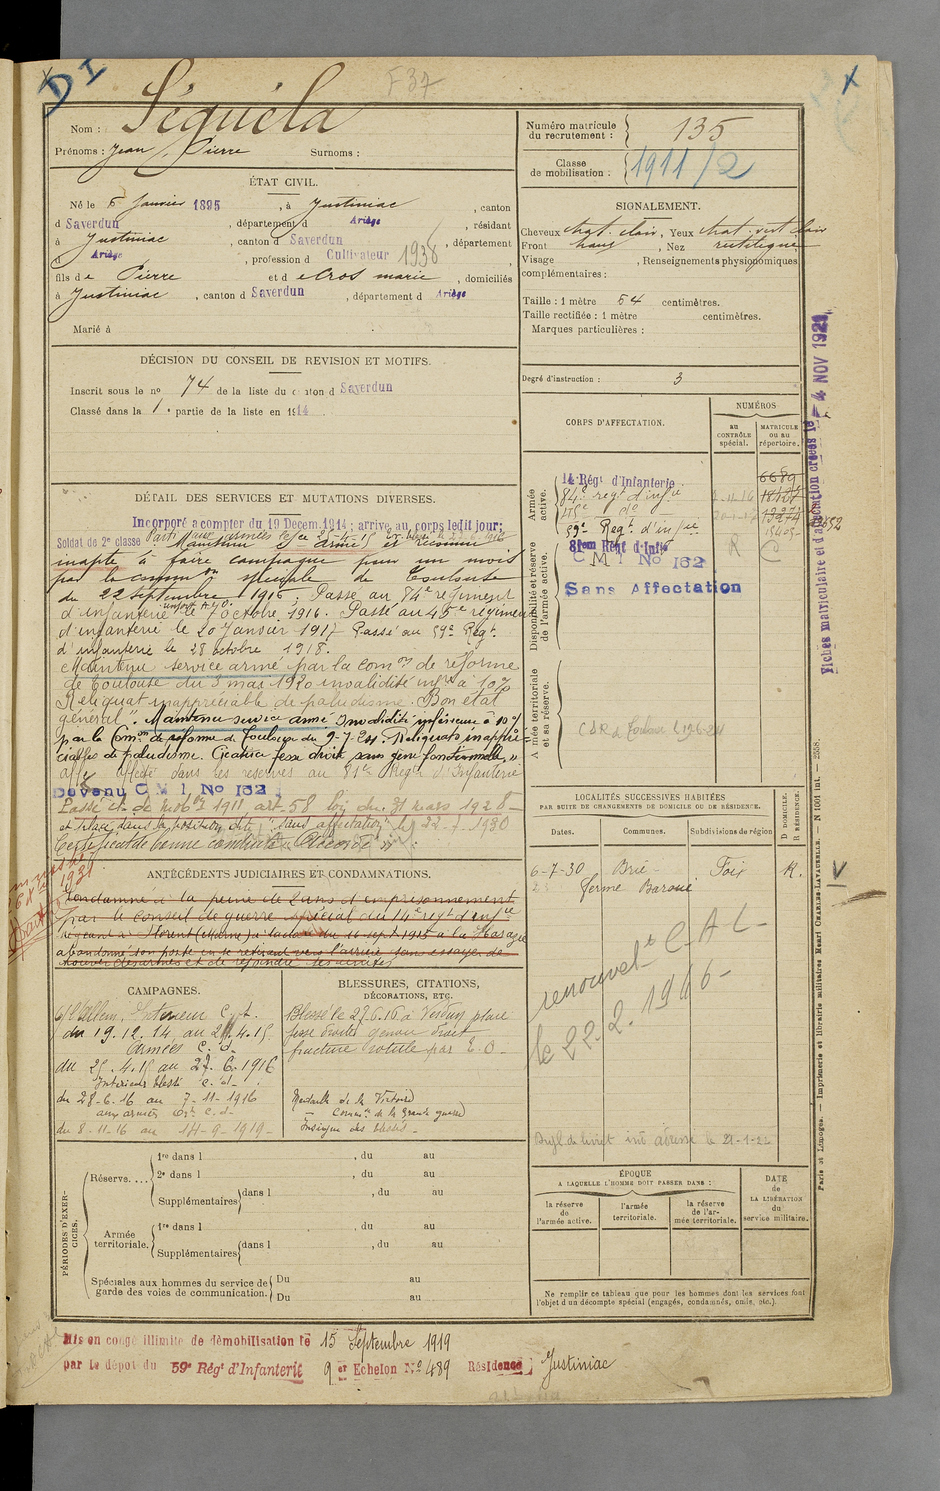 D I
F 37
Nom : Séguéla
Prénoms : Jean Pierre Surnoms :
ÉTAT CIVIL.
Né le 5 Janvier 1895, à Justiniac, canton
d Saverdun, département d Ariège, résidant
à Justiniac, canton d Saverdun, département
d Ariège, profession d Cultivateur 1936,
fils de Pierre et d Cros marie, domiciliés
à Justiniac, canton d Saverdun, département d Ariège
Marié à
DÉCISION DU CONSEIL DE REVISION ET MOTIFS.
Inscrit sous le no 74 de la liste du canton d Saverdun
Classé dans la 1e partie de la liste en 1914
DÉTAIL DES SERVICES ET MUTATIONS DIVERSES.
Incorporé a compter du 19 Decem. 1914 ; arrivé au corps ledit jour;
Soldat de 2e classe. Parti aux armées le 25-4-15
Maintenu S. armé et reconnu
inapte à faire campagne pour un mois
par la common spéciale de Toulouse
du 22 septembre 1916. Passé au 84e régiment
d'infanterie le 7 octobre 1916. Passé au 45e régiment
d'infanterie le 20 Janvier 1917 Passé au 59e Régt.
d'infanterie le 28 octobre 1918.
Maintenu service armé par la comon de réforme
de Toulouse du 3 mai 1920 invalidité infre à 10%
Reliquat inappréciable de paludisme. Bon état
général". Maintenu service armé Invalidité inférieure à 10%
par la Comon de réforme de Toulouse du 9-7-24. "Reliquats inappré-
ciables de paludisme. Cicatrice fesse droite sans gêne fonctionnelle"
aff affecté dans les réserves au 81e Régt d'Infanterie
Devenu C M I No 162
Passé cl. de mobon 1911 art. 58 loi du 31 mars 1928
et placé dans la position dite "sans affectation" le 22-7-1930
Certificat de bonne conduite "Accordé"
ANTÉCÉDENTS JUDICIAIRES ET CONDAMNATIONS.
Condamné à la peine de 2 ans d'emprisonnement
par le conseil de guerre spécial du 14e régt d'infie
séant à Florent (Marne) 16 sept. 1915 à la Harazée
abandonné son poste en se retirant vers l'arrière sans essayer de
CAMPAGNES.
C/ Allem. Intérieur C. St.
du 19.12.14 au 24.4.15
Armées C. d.
du 25.4.15 au 27.6.1916
Intérieur blessé C. d.
du 28-6.16 au 7-11-1916
aux armées C. d.
du 8-11-16 au 14-9-1919
BLESSURES, CITATIONS,
DÉCORATIONS, ETC.
Blessé le 27.6.16 à Verdun plaie
fesse droite genou droit
fracture rotule par E.O.
Médaille de la Victoire
— Commve de la Grande guerre
Insigne des blessés
PÉRIODES D'EXERCICES.
Réserve.... 1re dans l , du au
2e dans l , du au
Supplémentaires dans l , du au
Armée territoriale. 1re dans l , du au
Supplémentaires dans l , du au
Spéciales aux hommes du service de garde des voies de communication. Du au
Du au
Mis en congé illimité de démobilisation le 15 Septembre 1919
par le dépôt du 59e Régt d'Infanterie 9er Echelon No 489 Résidence Justiniac
Numéro matricule du recrutement : 135
Classe de mobilisation : 1911/2
SIGNALEMENT.
Cheveux chat. clair, Yeux chat. vert clair
Front haut, Nez rectiligne
Visage , Renseignements physionomiques
complémentaires :
Taille : 1 mètre 54 centimètres.
Taille rectifiée : 1 mètre centimètres.
Marques particulières :
Degré d'instruction : 3
CORPS D'AFFECTATION.
NUMÉROS
au CONTRÔLE spécial.
MATRICULE OU AU répertoire.
Armée active.
14 Régt d'Infanterie 6689
84e régt d'infie
45e do
59e Régt d'infie
Disponibilité et réserve de l'armée active.
81em Régt d'Infie R C
C M I No 162
Sans Affectation
Armée territoriale et sa réserve.
LOCALITÉS SUCCESSIVES HABITÉES
PAR SUITE DE CHANGEMENTS DE DOMICILE OU DE RÉSIDENCE.
Dates. Communes. Subdivisions de région D DOMICILE. R RÉSIDENCE.
6-7-30 Brie - Foix R.
ferme Baroué
renouvelt C A L
le 22.2.1946
ÉPOQUE
A LAQUELLE L'HOMME DOIT PASSER DANS :
la réserve de l'armée active.
l'armée territoriale.
la réserve de l'armée territoriale.
DATE de LA LIBÉRATION du service militaire.
Ne remplir ce tableau que pour les hommes dont les services font
l'objet d'un décompte spécial (engagés, condamnés, omis, etc.).
Fiches matriculaire et d'affectation créées le 4 NOV 1921
Paris et Limoges. — Imprimerie et librairie militaires Henri CHARLES-LAVAUZELLE. — N 1001 int. — 2558.